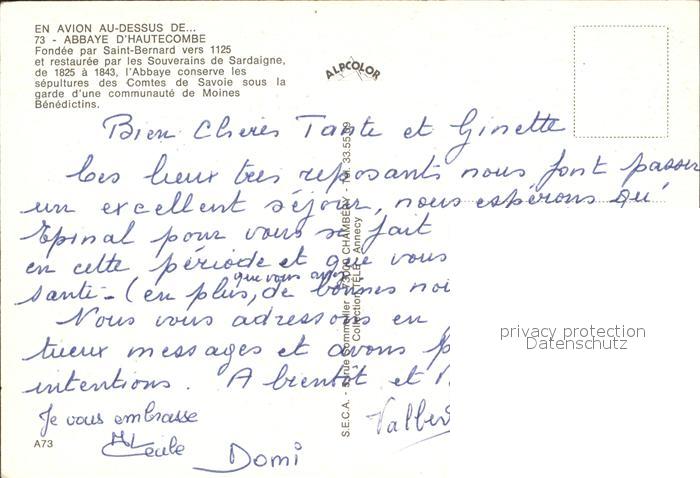 EN AVION AU-DESSUS DE...
73 - ABBAYE D'HAUTECOMBE
Fondée par Saint-Bernard vers 1125
et restaurée par les Souverains de Sardaigne,
de 1825 à 1843, l'Abbaye conserve les
sépultures des Comtes de Savoie sous la
garde d'une communauté de Moines
Bénédictins.
ALPCOLOR
Bien Chères Tante et Ginette
Ces lieux très reposants nous font passer
un excellent séjour, nous espérons qu'
Epinal pour vous se fait
en cette période et que vous
que vous ayez
santé - (en plus, de bonnes
Nous vous adressons en
tueux messages et avons
intentions. A bientôt et
Je vous embrasse
Cécile
Domi
A73
S.E.C.A. - rue Sommeiller 73000 CHAMBÉRY - Tél. 33.55.
Collection TÉLÉ Annecy
privacy protection
Datenschutz